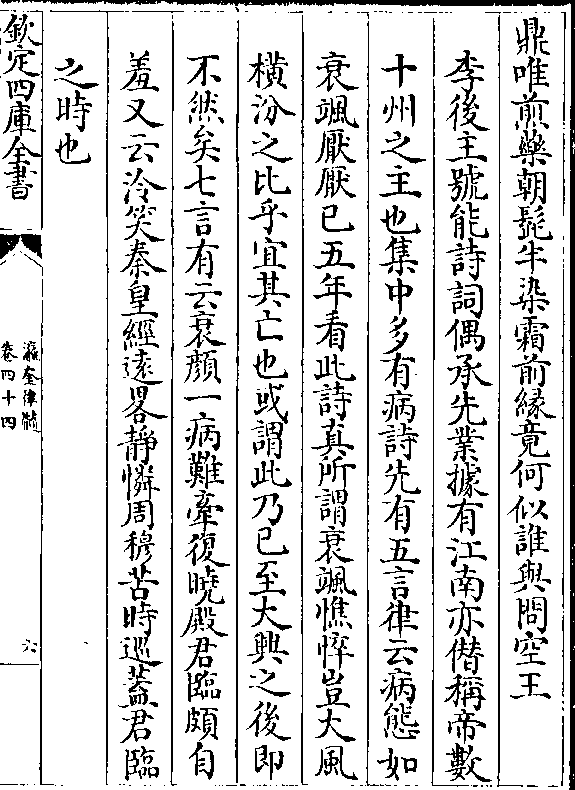 鼎唯煎藥朝髭半染霜前緣竟何似誰與問空王
李後主號能詩詞偶承先業據有江南亦僣稱帝數
十州之主也集中多有病詩先有五言律云病態如
衰颯厭厭已五年看此詩真所謂衰颯憔悴豈大風
橫汾之比乎宜其亡也或謂此乃已至大興之後即
不然矣七言有云衰顔一病難牽復曉殿君臨頗自
羞又云冷笑秦皇經逺畧靜憐周穆苦時巡蓋君臨
之時也
欽定四庫全書
瀛奎律髓
卷四十四
六